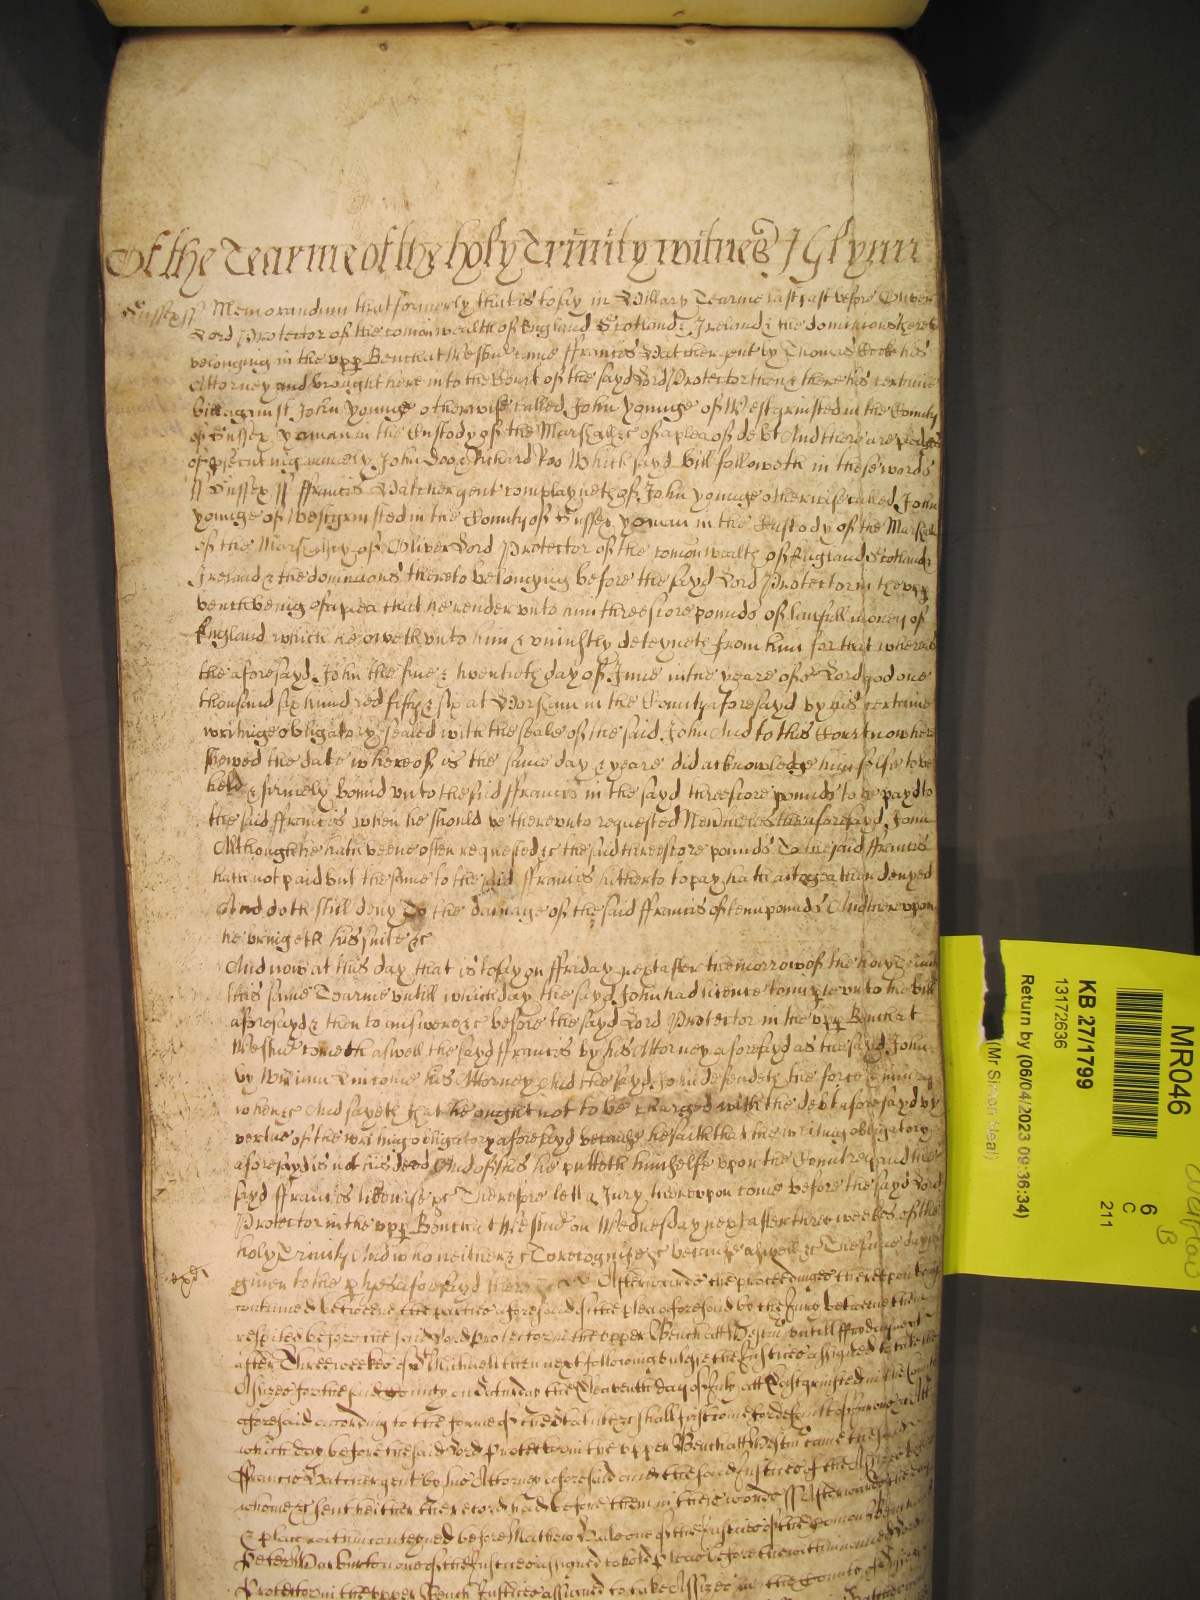 Of the Tearme of the holy Trinity witnes J Glynn
Sussex ss Memorandum that formerly that is to say in Hillary Tearme last past before Oliver
Lord Protector of the comonwealth of England Scotland & Ireland & the dominions thereto
belonging in the upp Bench at Westmr came ffrancis Hatcher gent by Thomas his
Attorney and brought here into the Court of the sayd Lord Protector then & there his certaine
bill against John Younge otherwise called John Younge of Westgrinsted in the County
of Sussex yoman in the Custody of the Marshall &c of a plea of debt And there are pledges
of psecuting namely John Doo & Richard Roo Which sayd bill followeth in these words
ss Sussex ss ffrancis Hatcher gent complayneth of John Younge otherwise called John
Younge of Westgrinsted in the County of Sussex yoman in the Custody of the Marshall
of the Marshalsey of Oliver Lord Protector of the comonwealth of England Scotland &
Ireland & the dominions thereto belonging before the sayd Lord Protector in the upp
bench being of a plea that he render unto him threescore pounds of lawfull money of
England which he oweth unto him & uniustly deteyneth from him for that whereas
the aforesayd John the five & twentieth day of June in the yeare of or Lord god one
thousand six hundred fifty & six at Horsham in the County aforesayd by his certaine
writinge obligatory sealed with the seale of the said John And to this Court now here
shewed the date whereof is the same day & yeare did acknowledge himselfe to be
held & firmely bound unto the said ffrancis in the sayd threescore pounds to be payd to
the said ffrancis when he should be thereunto requested Neverthelesse the aforesayd John
Although he hath beene often requested &c the said threescore pounds To the said ffrancis
hath not paid but the same to the said ffrancis hitherto to pay hath altogeather denyed
And doth still deny To the damage of the said ffrancis of tenn pounds And thereupon
he bringeth his suite &c
And now at this day that is to say on ffriday next after the morrow of the holy Trinity
this same Tearme untill which day the sayd John had licence to imparle unto the bill
aforesayd & then to answere &c before the sayd Lord Protector in the upp Bench at
Westmr cometh aswell the sayd ffrancis by his Attorney aforesayd as the sayd John
by William his Attorney And the sayd John defendeth the force & iniury
when &c And sayeth that he ought not to be charged with the debt aforesayd by
vertue of the writing obligatory aforesayd because he saith that the writing obligatory
aforesayd is not his deed And of this he putteth himselfe upon the Countrey And the
sayd ffrancis likewise &c Therefore lett a Jury thereupon come before the sayd Lord
Protector in the upp Bench at Westmr on Wednesday next after three weekes of the
holy Trinity And who neither &c To recognize &c because aswell &c The same day is
given to the pties aforesayd there &c Afterwards the proceedinges thereupon being
continued betweene the parties aforesaid of the plea aforesaid by the Jury betweene them
respited before the said Lord Protector in the upper Bench att Westm untill ffryday next
after Three weekes of St Michaell then next following unlesse the Justices assigned to take the
Assizes for the said County on Saturday the Eleaventh day of July att Eastgrinsted in the County
aforesaid according to the forme of the Statute &c shall first come for default of Jurors &c Att
which day before the said Lord Protector in the upper Bench att Westm came the said
ffrancis Hatcher gent by his Attorney aforesaid And the said Justices of the Assizes before
whome &c sent hether there record had before them in these words ss Afterwards the day
& place within conteyned before Mathew Hale one of the Justices of the Comon Bench and
Peter Warburton one of the Justices assigned to hold pleas before the within named Lord
Protector in the upper Bench Justices assigned to take Assizes in the County of Sussex
exd
MR046
KB 27/1799
13172636
Return by (06/04/2023 09:36:34)
(Mr Simon Neal)
6
C
211
B